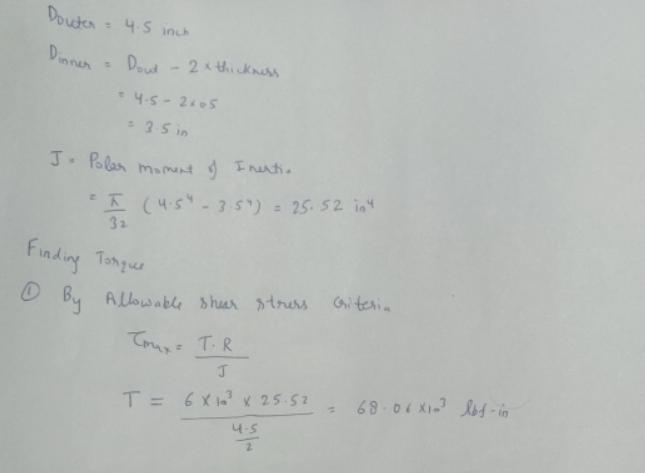 Douter = 4.5 inch
Dinner = Dout - 2 x thickness
= 4.5 - 2x05
= 3.5 in
J = Polar moment of Inertia
= π/32 (4.5⁴ - 3.5⁴) = 25.52 in⁴
Finding Torque
① By Allowable shear stress Criteria
τmax = T.R/J
T = 6 x 10³ x 25.52 / (4.5/2) = 68.06 x10³ lbf-in